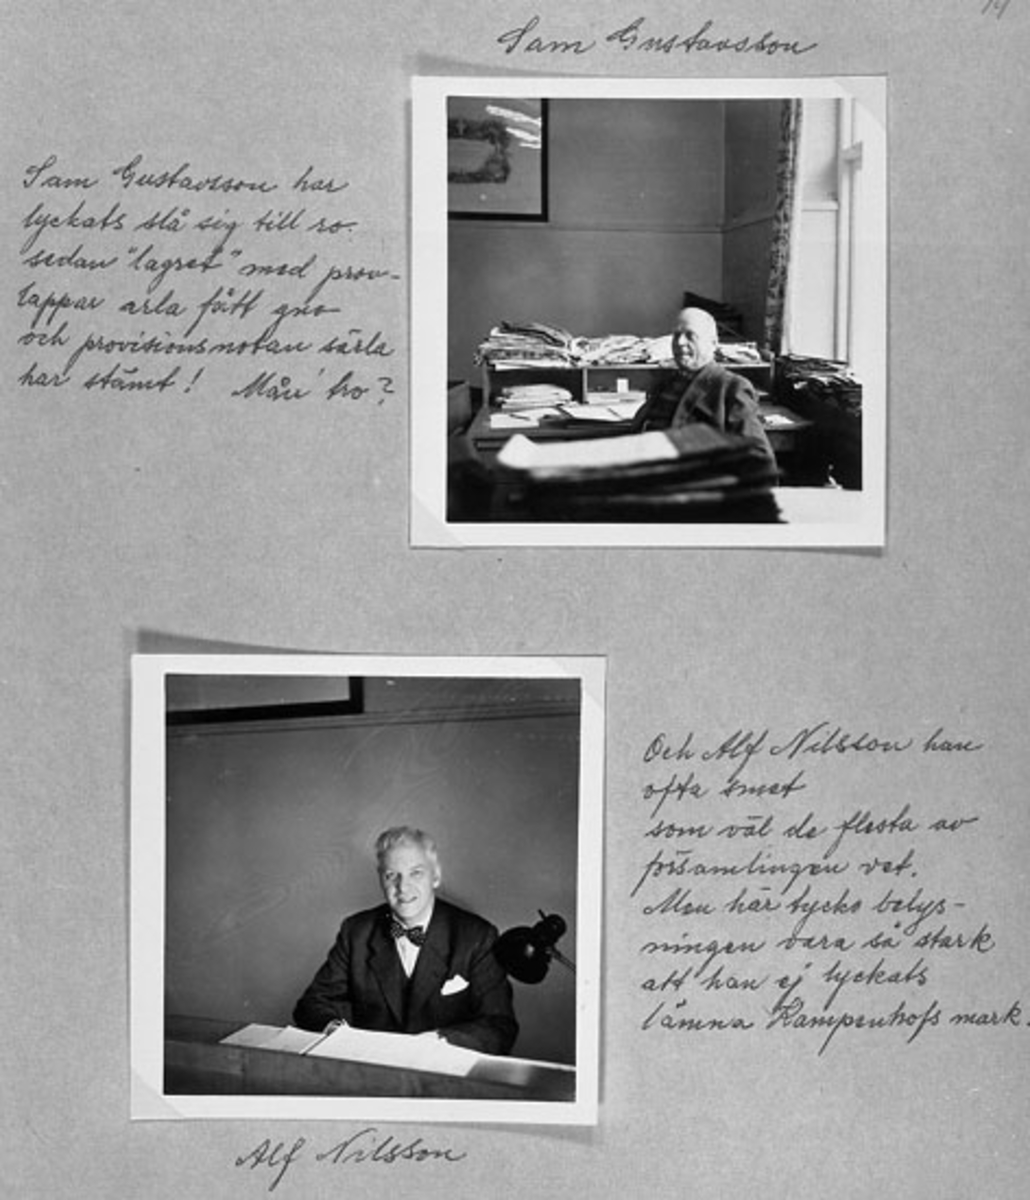 Sam Gustavsson
Sam Gustavsson har
lyckats slå sig till ro.
sedan "lagret" med prov-
lappar arla fått gno
och provisionsnotan särla
har stämt! Mån' tro?
Och Alf Nilsson han
ofta smet
som väl de flesta av
församlingen vet.
Men här tycks belys-
ningen vara så stark
att han ej lyckats
lämna Kampenhofs mark.
Alf Nilsson